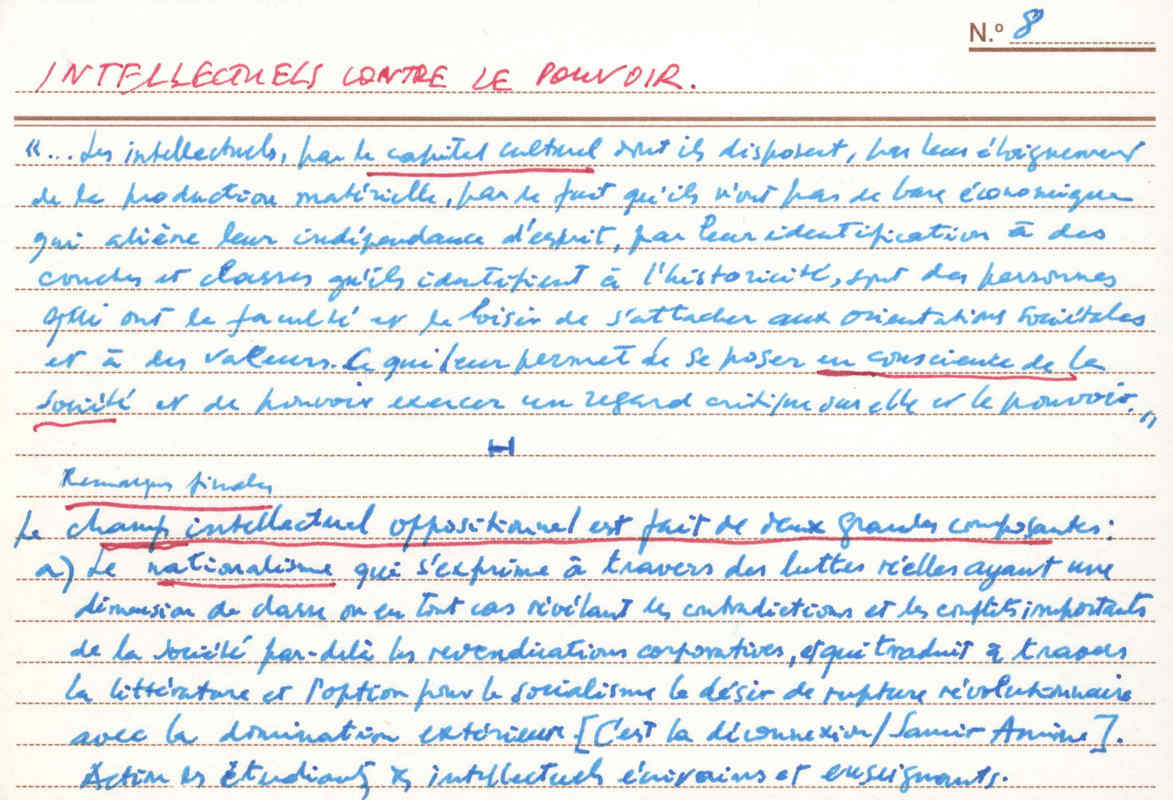 N.º 8
INTELLECTUELS CONTRE LE POUVOIR.
«... Les intellectuels, par le capital culturel dont ils disposent, par leur éloignement
de la production matérielle, par le fait qu'ils n'ont pas de base économique
qui aliène leur indépendance d'esprit, par leur identification à des
couches et classes qu'ils identifient à l'historicité, sont des personnes
qui ont la faculté et le loisir de s'attacher aux orientations sociétales
et à des valeurs. Ce qui leur permet de se poser en conscience de la
société et de pouvoir exercer un regard critique sur elle et le pouvoir. »
Remarques finales
Le champ intellectuel oppositionnel est fait de deux grandes composantes :
a) Le nationalisme qui s'exprime à travers des luttes réelles ayant une
dimension de classe ou en tout cas révélant les contradictions et les conflits importants
de la société par-delà les revendications corporatives, et qui traduit à travers
la littérature et l'option pour le socialisme le désir de rupture révolutionnaire
avec la domination extérieure [C'est la déconnexion / Samir Amine].
Action des étudiants intellectuels écrivains et enseignants.